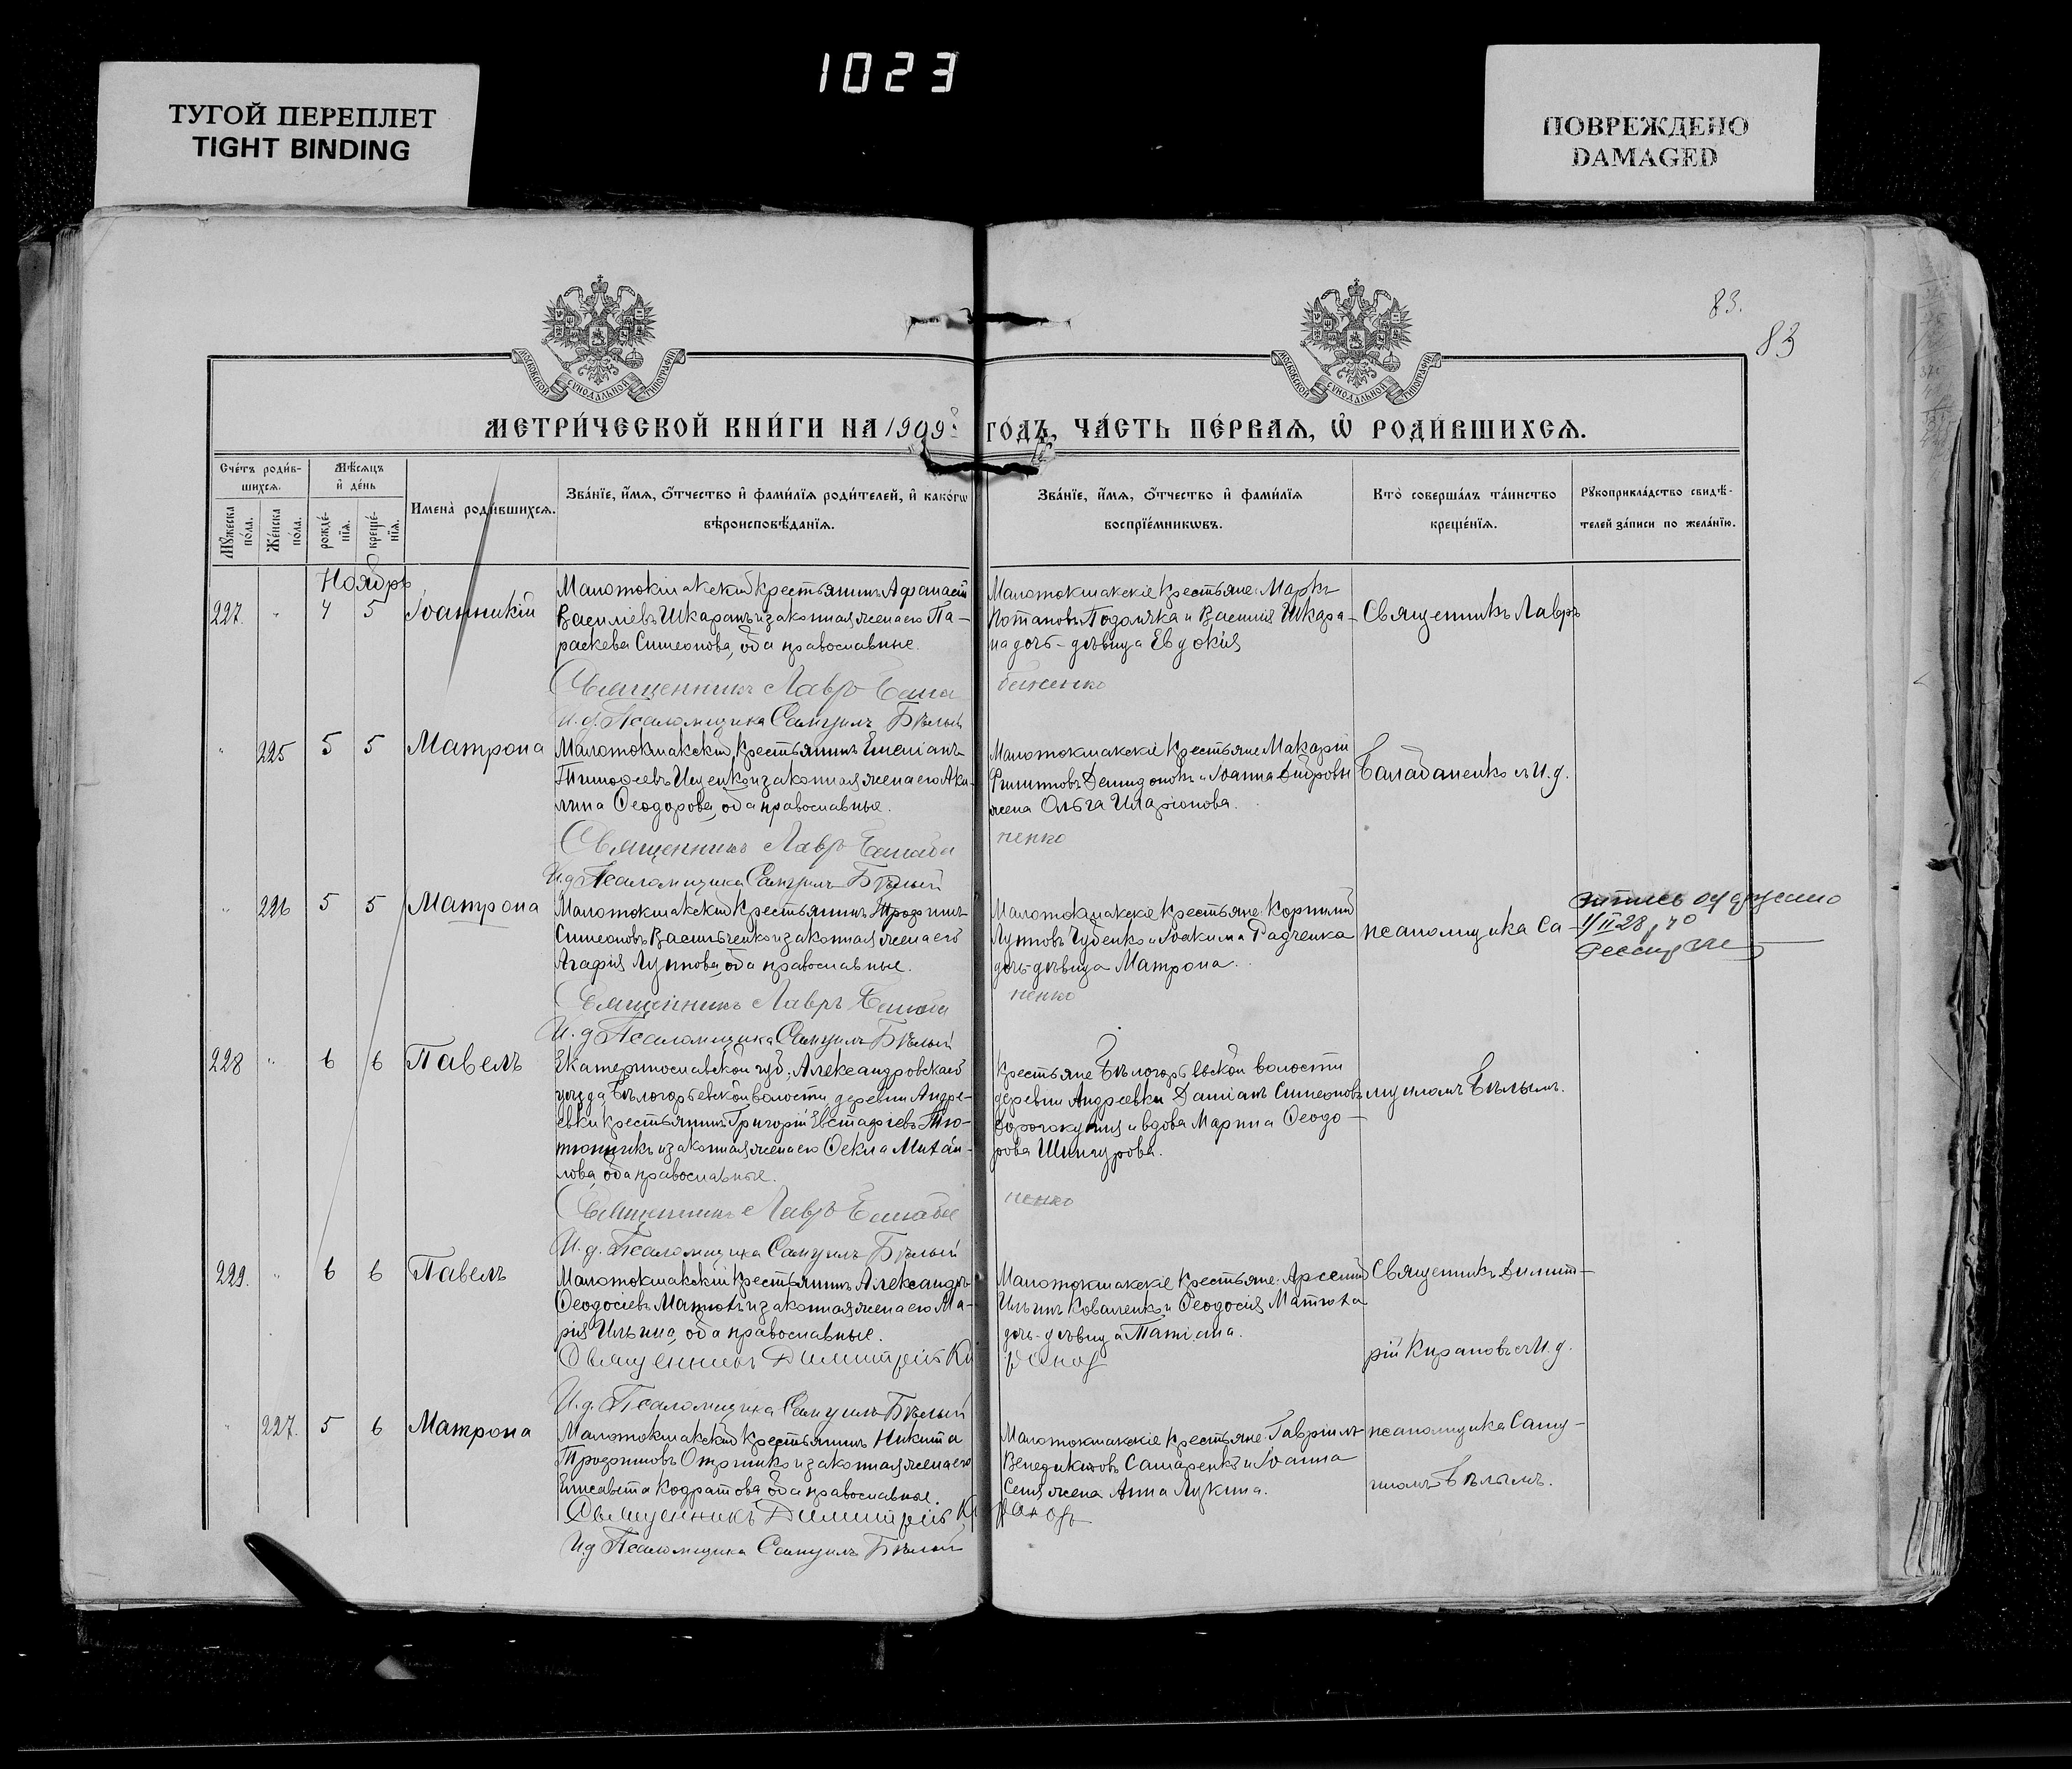 1023
ТУГОЙ ПЕРЕПЛЕТ
TIGHT BINDING
ПОВРЕЖДЕНО
DAMAGED
83.
83
МОСКОВСКОЙ СУНОДАЛЬНОЙ ТИПОГРАФІИ
МОСКОВСКОЙ СУНОДАЛЬНОЙ ТИПОГРАФІИ
МЕТРИ́ЧЕСКОЙ КНИ́ГИ НА 1909 ГОДЪ, ЧА́СТЬ ПЕ́РВАѦ, Ѡ҆ РОДИ́ВШИХСѦ.
Сче́тъ роди́в-
шихсѧ.
Мꙋжеска по́ла.
Же́нска по́ла.
Мѣ́сѧцъ
и҆ де́нь
рожде́-
нїѧ.
креще́-
нїѧ.
Имена̀ роди́вшихсѧ.
Зва́нїе, и҆́мѧ, ѻ҆́тчество и҆ фами́лїѧ роди́телей, и҆ како́гѡ
вѣроисповѣ́данїѧ.
Зва́нїе, и҆́мѧ, ѻ҆́тчество и҆ фами́лїѧ
воспрїе́мникѡвъ.
Кто̀ соверша́лъ та́инство
креще́нїѧ.
Рꙋкоприкла́дство свидѣ́-
телей за́писи по жела́нїю.
Ноябрь
227. " 4 5 Іоанникій
Малотокмакскій крестьянинъ Афанасій
Василіевъ Шкаранъ и законная жена его Па-
раскева Симеонова, оба православные.
Священникъ Лавръ Балабаненко
И. д. Псаломщика Самуилъ Бѣлый
Малотокмакскіе крестьяне: Маркъ
Потаповъ Подолячка и Василія Шкара-
на дочь-дѣвица Евдокія
Священникъ Лавръ
" 225 5 5 Матрона
Малотокмакскій крестьянинъ Емиліанъ
Тимоѳеевъ Ищенко и законная жена его Аки-
лина Ѳеодорова, оба православные.
Священникъ Лавръ Балабаненко
И. д. Псаломщика Самуилъ Бѣлый
Малотокмакскіе крестьяне Макарій
Филипповъ и Іоанна
жена Ольга Иларіонова.
Балабаненко съ И. д.
" 226 5 5 Матрона
Малотокмакскій крестьянинъ Трофимъ
Симеоновъ Васильченко и законная жена его
Агафія Луппова, оба православные.
Священникъ Лавръ Балабаненко
И. д. Псаломщика Самуилъ Бѣлый
Малотокмакскіе крестьяне: Корнилій
Лупповъ Чубенко и Іоакима Радченка
дочь-дѣвица Матрона.
псаломщика Са-
1/II 28
228 " 6 6 Павелъ
Екатеринославской губ., Александровскаго
уѣзда Бѣлогорьевской волости, деревни Андре-
евки крестьянинъ Григорій Евстафіевъ Тю-
тюнникъ и законная жена его Ѳекла Михаи-
лова, оба православные.
Священникъ Лавръ Балабаненко
И. д. Псаломщика Самуилъ Бѣлый
Крестьяне Бѣлогорьевской волости
деревни Андреевки Даміанъ Симеоновъ
и вдова Марина Ѳеодо-
рова
муиломъ Бѣлымъ.
229. " 6 6 Павелъ
Малотокмакскій крестьянинъ Александръ
Ѳеодосіевъ Матюха и законная жена его Ма-
рія Ильина, оба православные.
Священникъ Димитрій Кирановъ
И. д. Псаломщика Самуилъ Бѣлый
Малотокмакскіе крестьяне: Арсеній
Ильинъ Коваленко и Ѳеодосія Матюха
дочь-дѣвица Татіана.
Священникъ Димит-
рій Кирановъ съ И. д.
" 227. 5 6 Матрона
Малотокмакскій крестьянинъ Никита
Трофимовъ и законная жена его
Елисавета Кодратова, оба православные.
Священникъ Димитрій Кирановъ
И. д. Псаломщика Самуилъ Бѣлый
Малотокмакскіе крестьяне: Гавріилъ
Венедиктовъ и Іоанна
жена Анна Лукина.
псаломщика Саму-
иломъ Бѣлымъ.